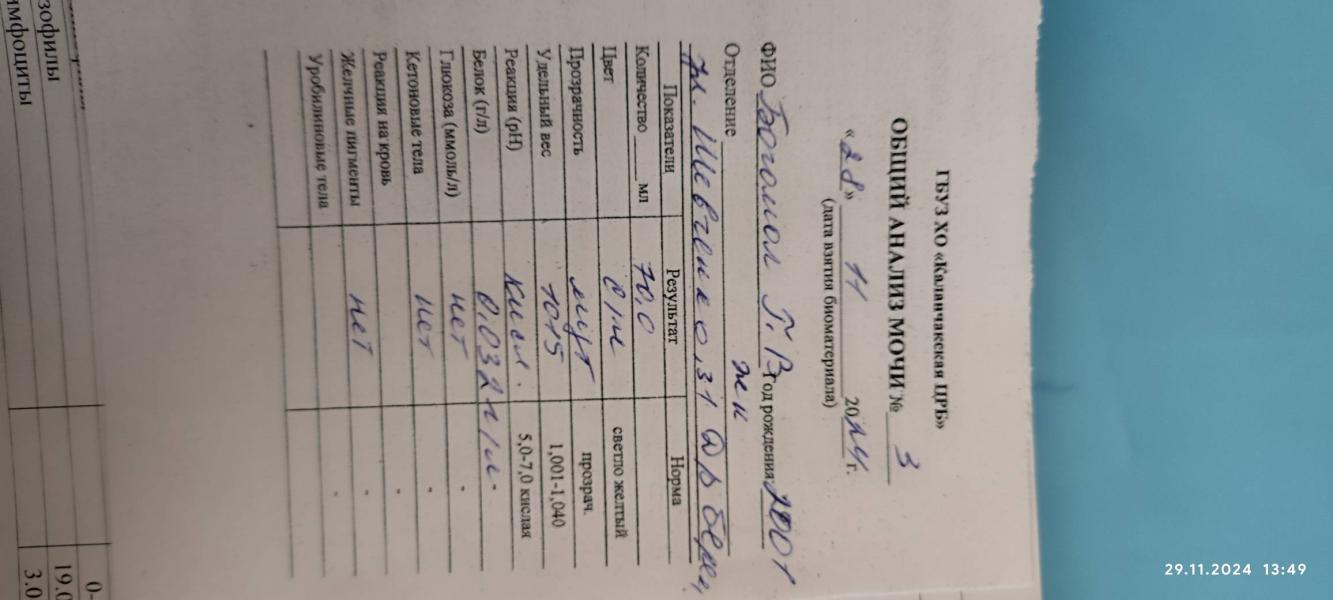 ГБУЗ ХО «Каланчакская ЦРБ»
ОБЩИЙ АНАЛИЗ МОЧИ № 3
«28» 11 2024 г.
(дата взятия биоматериала)
ФИО Богомол Г. В. Год рождения 2001
Отделение жк
ул. Шевченко, 31 берем,
Показатели Результат Норма
Количество ____ мл 70,0
Цвет с/ж светло желтый
Прозрачность мут прозрач.
Удельный вес 1015 1,001-1,040
Реакция (pH) кисл. 5,0-7,0 кислая
Белок (г/л) 0.032 г/л -
Глюкоза (ммоль/л) нет -
Кетоновые тела нет -
Реакция на кровь -
Желчные пигменты нет -
Уробилиновые тела -
0-
зофилы 19.0
имфоциты 3.0
29.11.2024 13:49